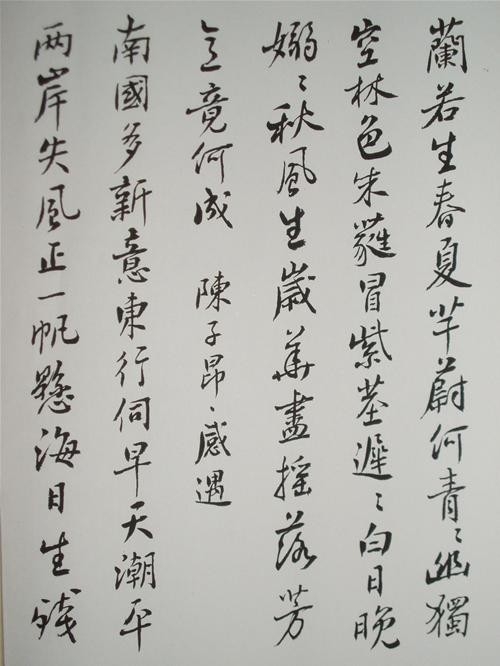 蘭若生春夏芊蔚何青〻幽獨
空林色朱蕤冒紫莖遲〻白日晚
嫋〻秋風生歲華盡搖落芳
意竟何成 陳子昂、感遇
南國多新意東行伺早天潮平
两岸失風正一帆懸海日生残